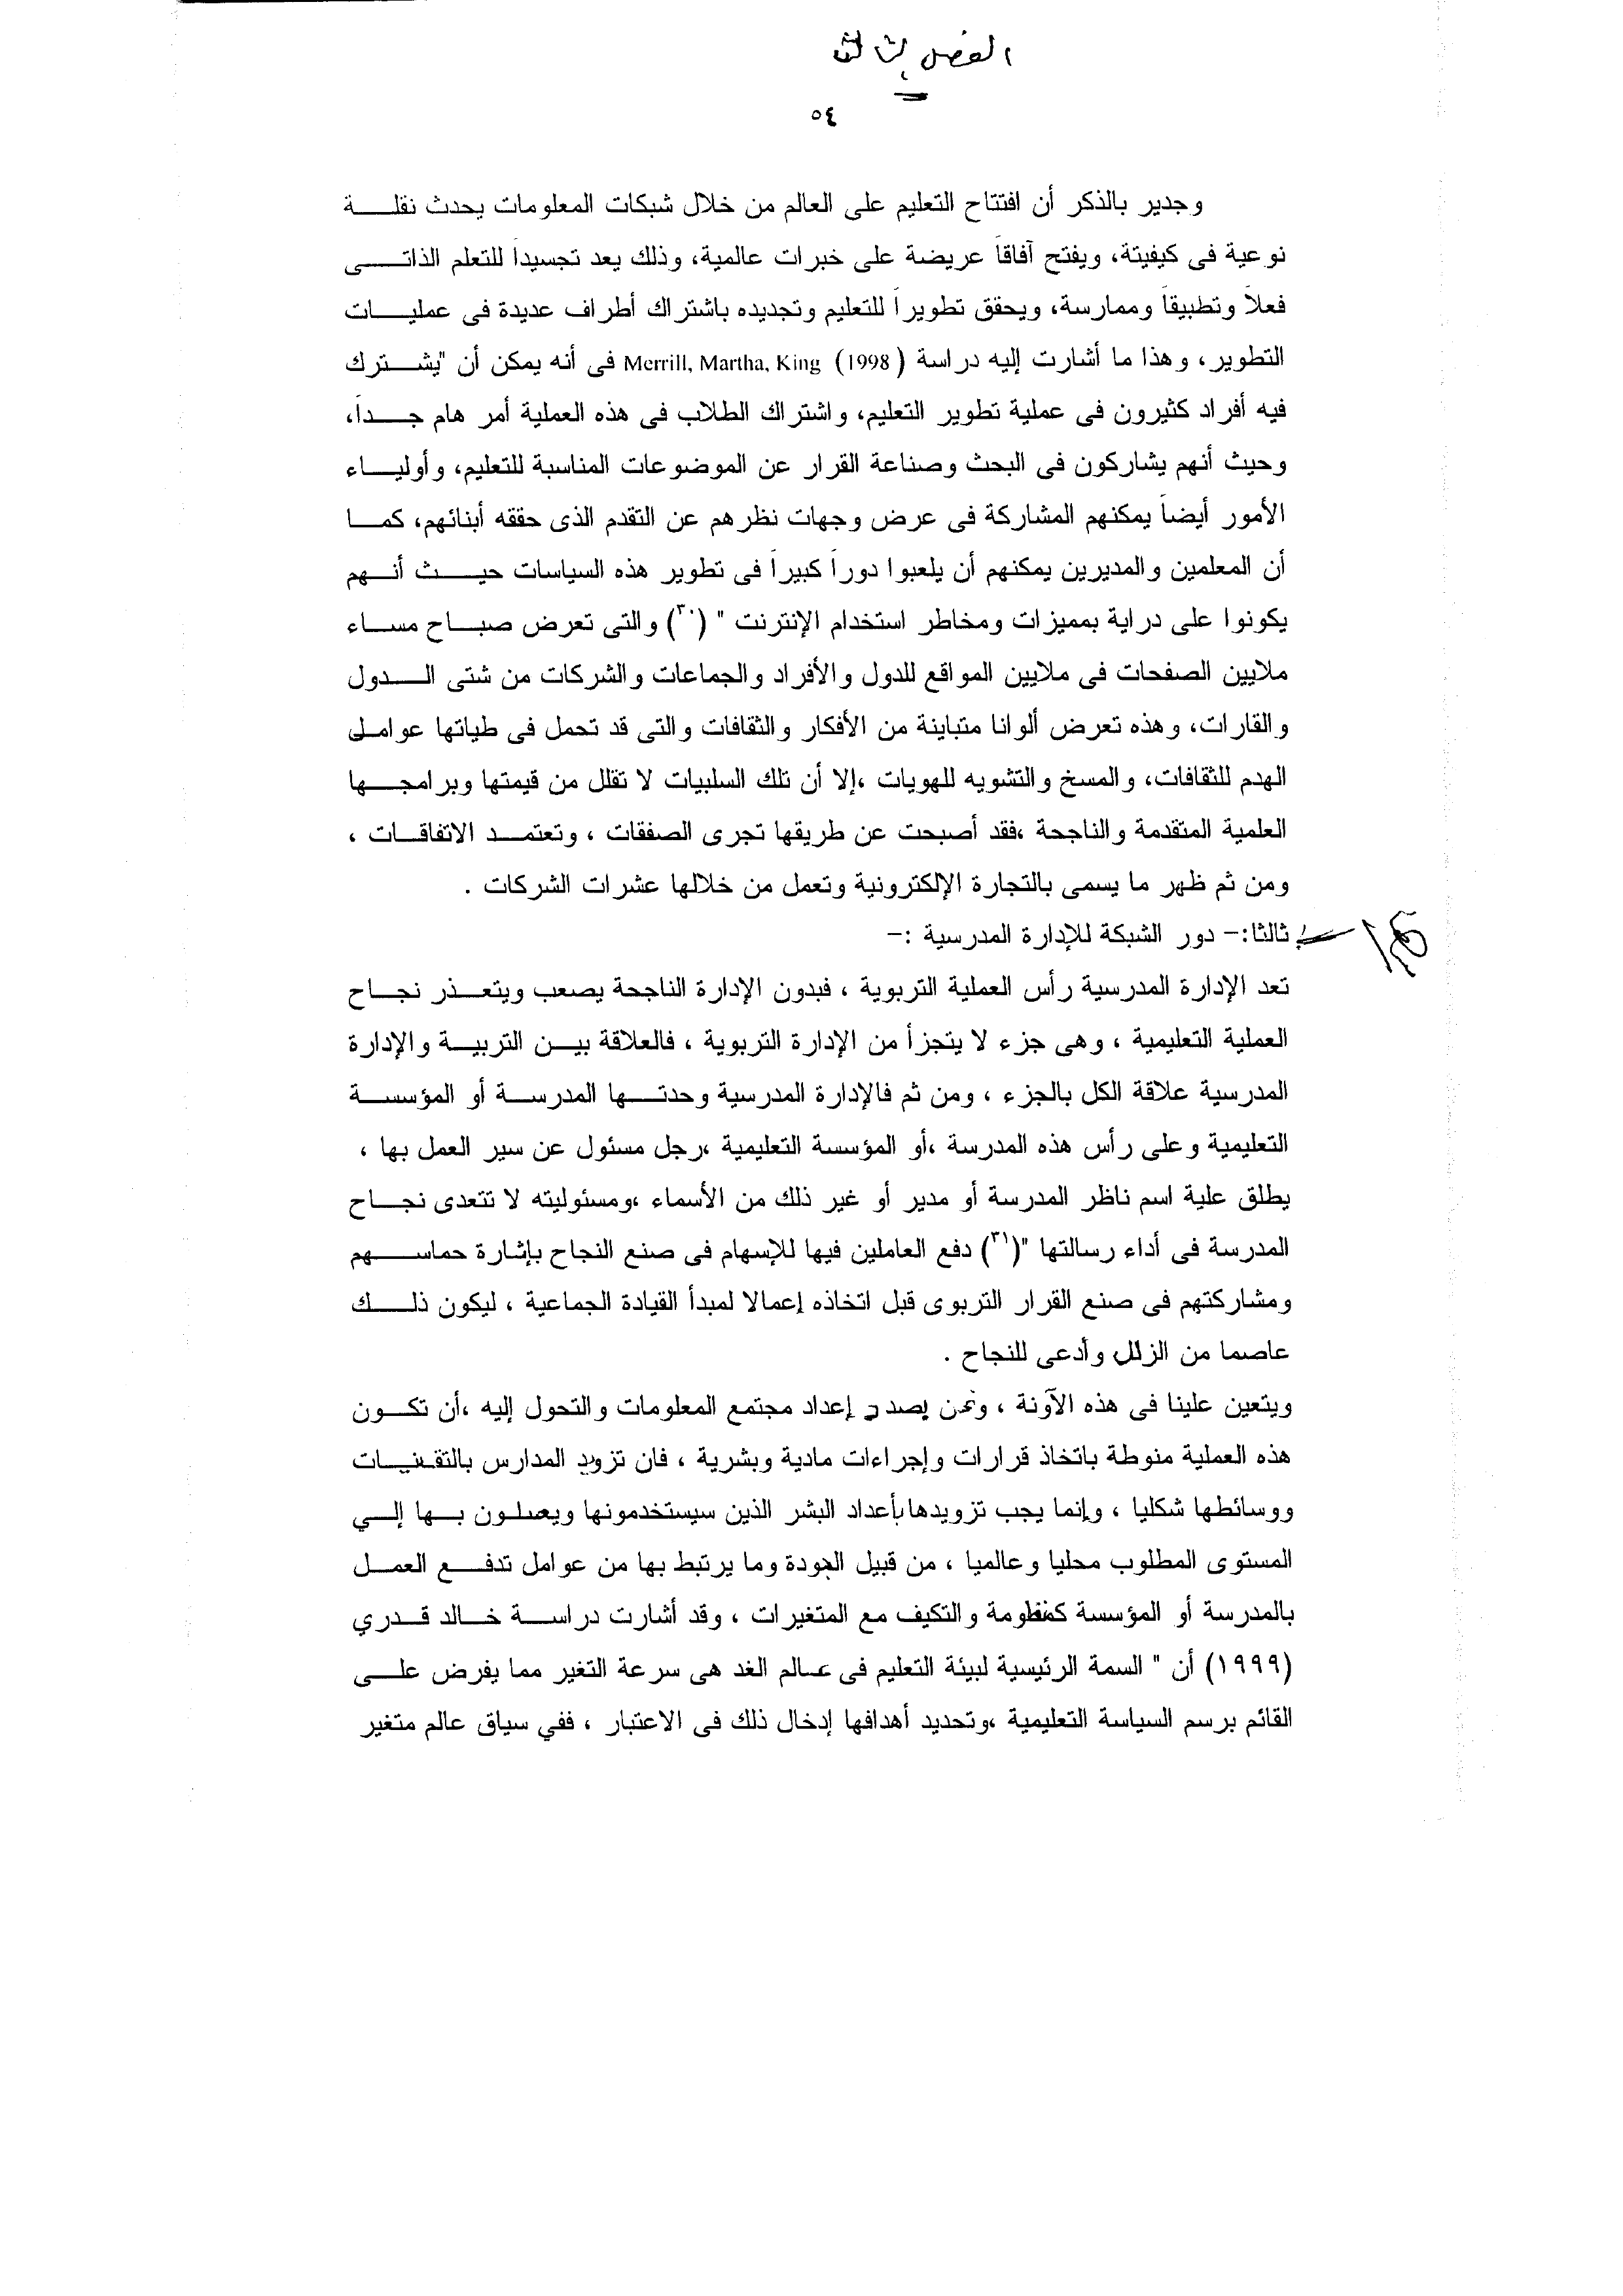 الفصل الثالث
٥٤
وجدير بالذكر أن افتتاح التعليم على العالم من خلال شبكات المعلومات يحدث نقلة
نوعية فى كيفيتة، ويفتح آفاقاً عريضة على خبرات عالمية، وذلك يعد تجسيداً للتعلم الذاتى
فعلاً وتطبيقاً وممارسة، ويحقق تطويراً للتعليم وتجديده باشتراك أطراف عديدة فى عمليات
التطوير، وهذا ما أشارت إليه دراسة Merrill, Martha, King (1998) فى أنه يمكن أن "يشترك
فيه أفراد كثيرون فى عملية تطوير التعليم، واشتراك الطلاب فى هذه العملية أمر هام جداً،
وحيث أنهم يشاركون فى البحث وصناعة القرار عن الموضوعات المناسبة للتعليم، وأولياء
الأمور أيضاً يمكنهم المشاركة فى عرض وجهات نظرهم عن التقدم الذى حققه أبنائهم، كما
أن المعلمين والمديرين يمكنهم أن يلعبوا دوراً كبيراً فى تطوير هذه السياسات حيث أنهم
يكونوا على دراية بمميزات ومخاطر استخدام الإنترنت " (٣٠) والتى تعرض صباح مساء
ملايين الصفحات فى ملايين المواقع للدول والأفراد والجماعات والشركات من شتى الدول
والقارات، وهذه تعرض ألوانا متباينة من الأفكار والثقافات والتى قد تحمل فى طياتها عوامل
الهدم للثقافات، والمسخ والتشويه للهويات ،إلا أن تلك السلبيات لا تقلل من قيمتها وبرامجها
العلمية المتقدمة والناجحة ،فقد أصبحت عن طريقها تجرى الصفقات ، وتعتمد الاتفاقات ،
ومن ثم ظهر ما يسمى بالتجارة الإلكترونية وتعمل من خلالها عشرات الشركات .
ثالثا:- دور الشبكة للإدارة المدرسية :-
تعد الإدارة المدرسية رأس العملية التربوية ، فبدون الإدارة الناجحة يصعب ويتعذر نجاح
العملية التعليمية ، وهى جزء لا يتجزأ من الإدارة التربوية ، فالعلاقة بين التربية والإدارة
المدرسية علاقة الكل بالجزء ، ومن ثم فالإدارة المدرسية وحدتها المدرسة أو المؤسسة
التعليمية وعلى رأس هذه المدرسة ،أو المؤسسة التعليمية ،رجل مسئول عن سير العمل بها ،
يطلق علية اسم ناظر المدرسة أو مدير أو غير ذلك من الأسماء ،ومسئوليته لا تتعدى نجاح
المدرسة فى أداء رسالتها "(٣١) دفع العاملين فيها للإسهام فى صنع النجاح بإشارة حماسهم
ومشاركتهم فى صنع القرار التربوى قبل اتخاذه إعمالا لمبدأ القيادة الجماعية ، ليكون ذلك
عاصما من الزلل وأدعى للنجاح .
ويتعين علينا فى هذه الآونة ، ونحن بصدد إعداد مجتمع المعلومات والتحول إليه ،أن تكون
هذه العملية منوطة باتخاذ قرارات وإجراءات مادية وبشرية ، فان تزويد المدارس بالتقنيات
ووسائطها شكليا ، وإنما يجب تزويدها بأعداد البشر الذين سيستخدمونها ويعملون بها إلي
المستوى المطلوب محليا وعالميا ، من قبيل الجودة وما يرتبط بها من عوامل تدفع العمل
بالمدرسة أو المؤسسة كمنظومة والتكيف مع المتغيرات ، وقد أشارت دراسة خالد قدري
(١٩٩٩) أن " السمة الرئيسية لبيئة التعليم فى عالم الغد هى سرعة التغير مما يفرض على
القائم برسم السياسة التعليمية ،وتحديد أهدافها إدخال ذلك فى الاعتبار ، ففي سياق عالم متغير